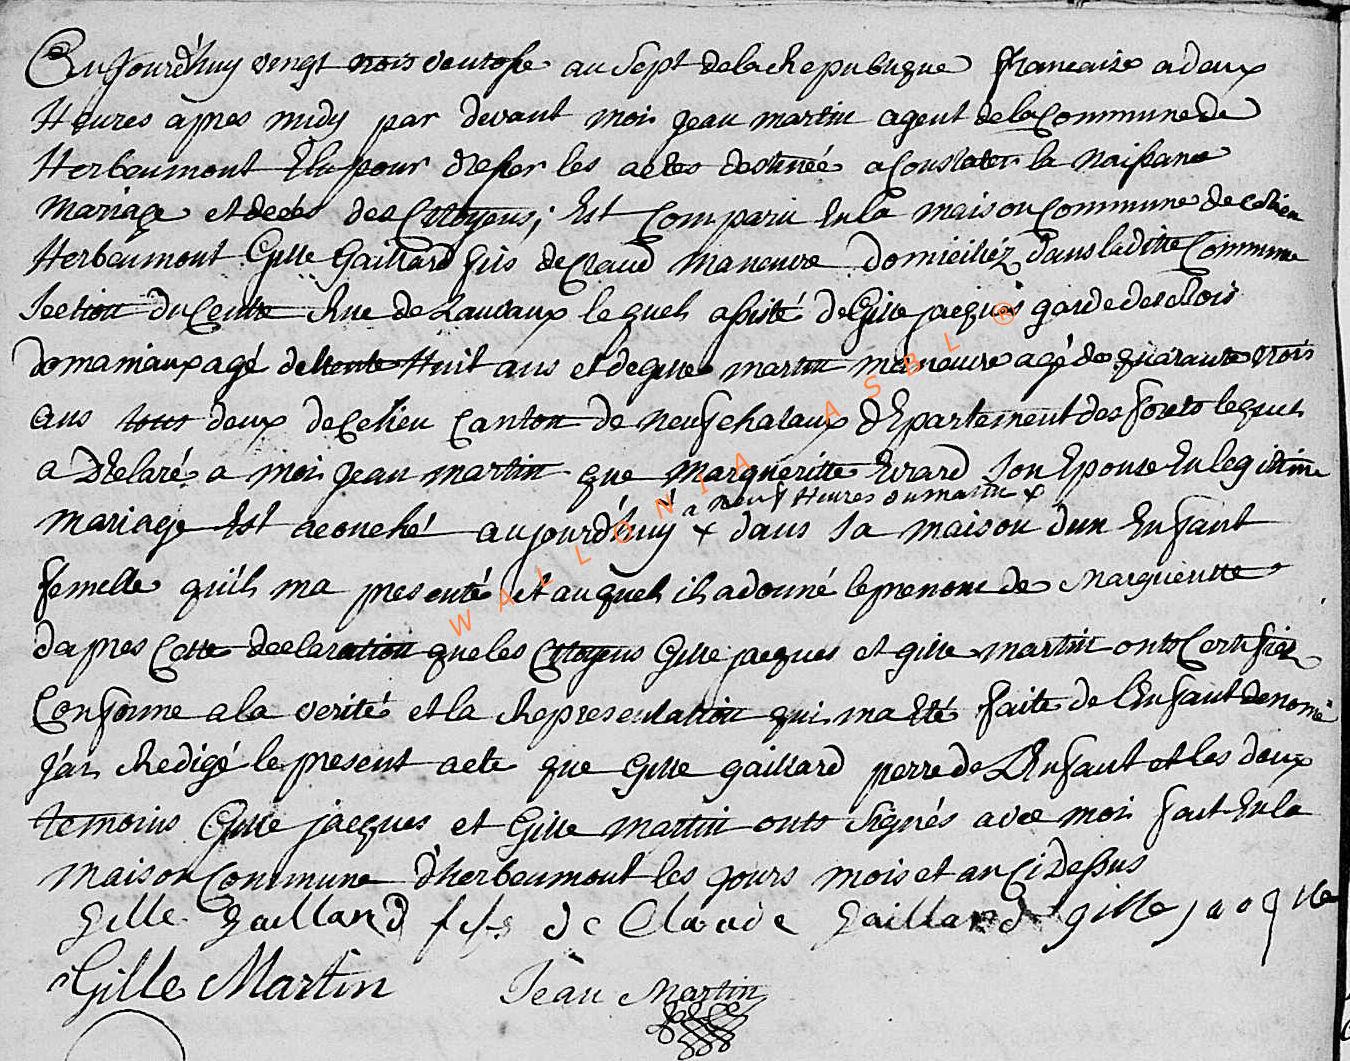 Aujourd'huy vingt trois ventose an sept de la Republique francaise a deux
Heures apres midy par devant moi jean martin agent de la Commune de
Herbeumont Elu pour dresser les actes destinée a Constater la Naissance
Mariage et deces des Citoyens; Est Comparu En la maison Commune de Celieu
Herbeumont Gille Gaillard fils de Claud Maneuvre domiciliéz dans laditte Commune
Section du Centre Rue de Lauvaux lequel assisté de Gille jacques garde des Bois
domaniaux agé de trente Huit ans et de gille martin maneuvre agé de quarante trois
ans tous deux de Celieu Canton de Neufchataux département des forets lequel
a Déclaré a moi jean martin que Margueritte Evrard Son Epouse En legitime
a neuf Heures du matin x
mariage Est acouché aujourd'huy x dans sa maison d'un Enfant
femelle qu'il ma presenté et auquel il a donné le prenom de Margueritte
dapres Cette declaration que les Citoyens Gille jacques et gille martin onts Certifiéz
Conforme a la verité et la Representation qui ma Eté faite de l'Enfant denomé
j'ai Redigé le present acte que Gille gaillard perre de L'Enfant et les deux
temoins Gille jacques et Gille martin onts Signés avec moi fait En la
maison Commune d'herbeumont les jours mois et an Ci Dessus
Gille Gaillard fils de Claude Gaillard gille jacque
Gille Martin Jean Martin
WALLONIA ASBL ®